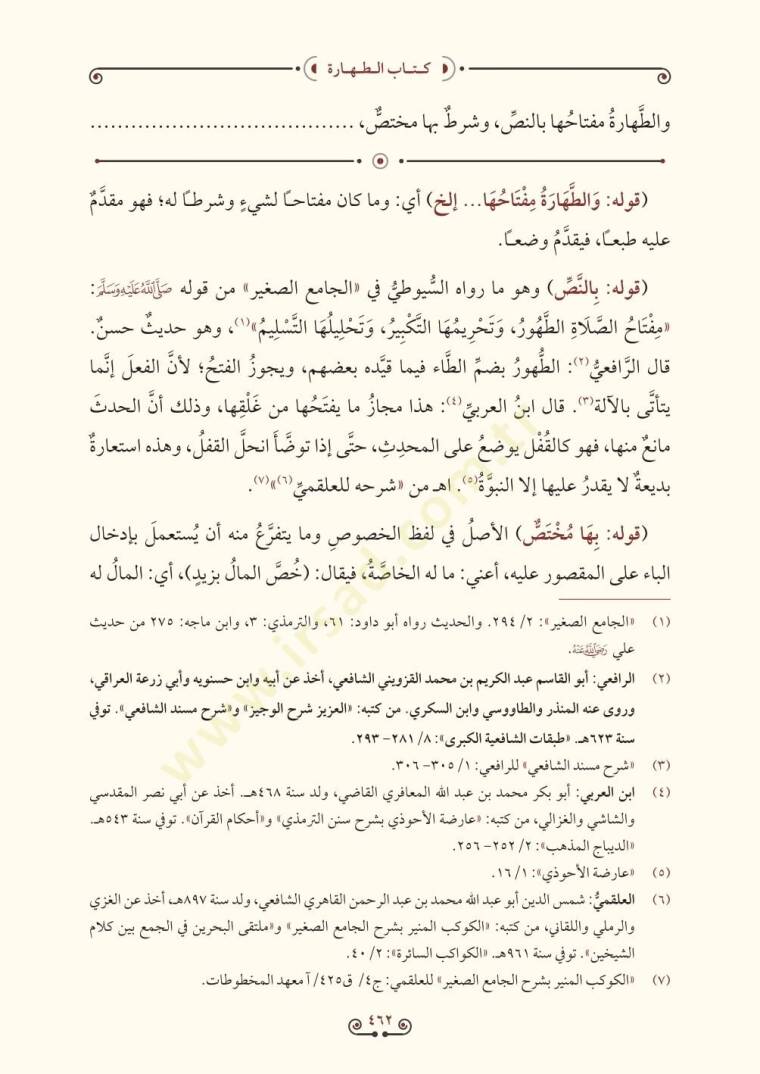 كتاب الطهارة
والطَّهارةُ مفتاحُها بالنصِّ، وشرطٌ بها مختصٌّ، .......................................
(قوله: وَالطَّهَارَةُ مِفْتَاحُهَا... إلخ) أي: وما كان مفتاحًا لشيءٍ وشرطًا له؛ فهو مقدَّمٌ
عليه طبعًا، فيقدَّمُ وضعًا.
(قوله: بِالنَّصِّ) وهو ما رواه السُّيوطيُّ في «الجامع الصغير» من قوله صَلَّى اللَّهُ عَلَيْهِ وَسَلَّمَ:
«مِفْتَاحُ الصَّلَاةِ الطَّهُورُ، وَتَحْرِيمُهَا التَّكْبِيرُ، وَتَحْلِيلُهَا التَّسْلِيمُ»(١)، وهو حديثٌ حسنٌ.
قال الرَّافعيُّ(٢): الطُّهورُ بضمِّ الطَّاء فيما قيَّده بعضهم، ويجوزُ الفتحُ؛ لأنَّ الفعلَ إنَّما
يتأتَّى بالآلة(٣). قال ابنُ العربيِّ(٤): هذا مجازُ ما يفتَحُها من غَلْقِها، وذلك أنَّ الحدثَ
مانعٌ منها، فهو كالقُفْل يوضعُ على المحدِثِ، حتَّى إذا توضَّأَ انحلَّ القفلُ، وهذه استعارةٌ
بديعةٌ لا يقدرُ عليها إلا النبوَّةُ(٥). اهـ من «شرحه للعلقميِّ(٦)»(٧).
(قوله: بِهَا مُخْتَصٌّ) الأصلُ في لفظ الخصوصِ وما يتفرَّعُ منه أن يُستعملَ بإدخال
الباء على المقصور عليه، أعني: ما له الخاصَّةُ، فيقال: (خُصَّ المالُ بزيدٍ)، أي: المالُ له
(١) «الجامع الصغير»: ٢/ ٢٩٤. والحديث رواه أبو داود: ٦١، والترمذي: ٣، وابن ماجه: ٢٧٥ من حديث
علي رَضِيَ اللَّهُ عَنْهُ.
(٢) الرافعي: أبو القاسم عبد الكريم بن محمد القزويني الشافعي، أخذ عن أبيه وابن حسنويه وأبي زرعة العراقي،
وروى عنه المنذر والطاووسي وابن السكري. من كتبه: «العزيز شرح الوجيز» و«شرح مسند الشافعي». توفي
سنة ٦٢٣هـ. «طبقات الشافعية الكبرى»: ٨/ ٢٨١- ٢٩٣.
(٣) «شرح مسند الشافعي» للرافعي: ١/ ٣٠٥- ٣٠٦.
(٤) ابن العربي: أبو بكر محمد بن عبد الله المعافري القاضي، ولد سنة ٤٦٨هـ. أخذ عن أبي نصر المقدسي
والشاشي والغزالي، من كتبه: «عارضة الأحوذي بشرح سنن الترمذي» و«أحكام القرآن». توفي سنة ٥٤٣هـ.
«الديباج المذهب»: ٢/ ٢٥٢- ٢٥٦.
(٥) «عارضة الأحوذي»: ١/ ١٦.
(٦) العلقميُّ: شمس الدين أبو عبد الله محمد بن عبد الرحمن القاهري الشافعي، ولد سنة ٨٩٧هـ، أخذ عن الغزي
والرملي واللقاني، من كتبه: «الكوكب المنير بشرح الجامع الصغير» و«ملتقى البحرين في الجمع بين كلام
الشيخين». توفي سنة ٩٦١هـ. «الكواكب السائرة»: ٢/ ٤٠.
(٧) «الكوكب المنير بشرح الجامع الصغير» للعلقمي: ج٤/ ق٤٢٥/ آ معهد المخطوطات.
٤٦٢
www.irsad.com.tr